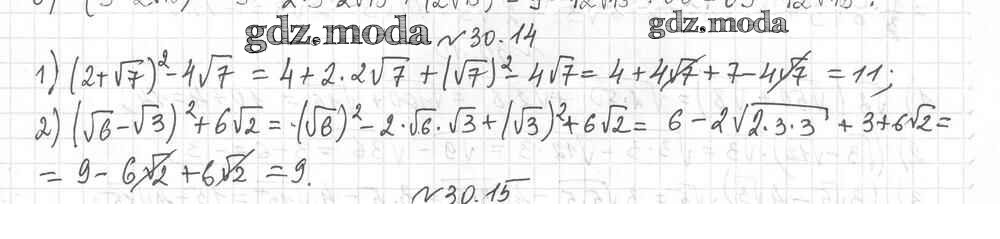 gdz.moda
gdz.moda
№30.14
1) (2+√7)² - 4√7 = 4 + 2·2√7 + (√7)² - 4√7 = 4 + 4√7 + 7 - 4√7 = 11;
2) (√6 - √3)² + 6√2 = (√6)² - 2·√6·√3 + (√3)² + 6√2 = 6 - 2√2·3·3 + 3 + 6√2 =
= 9 - 6√2 + 6√2 = 9.
№30.15